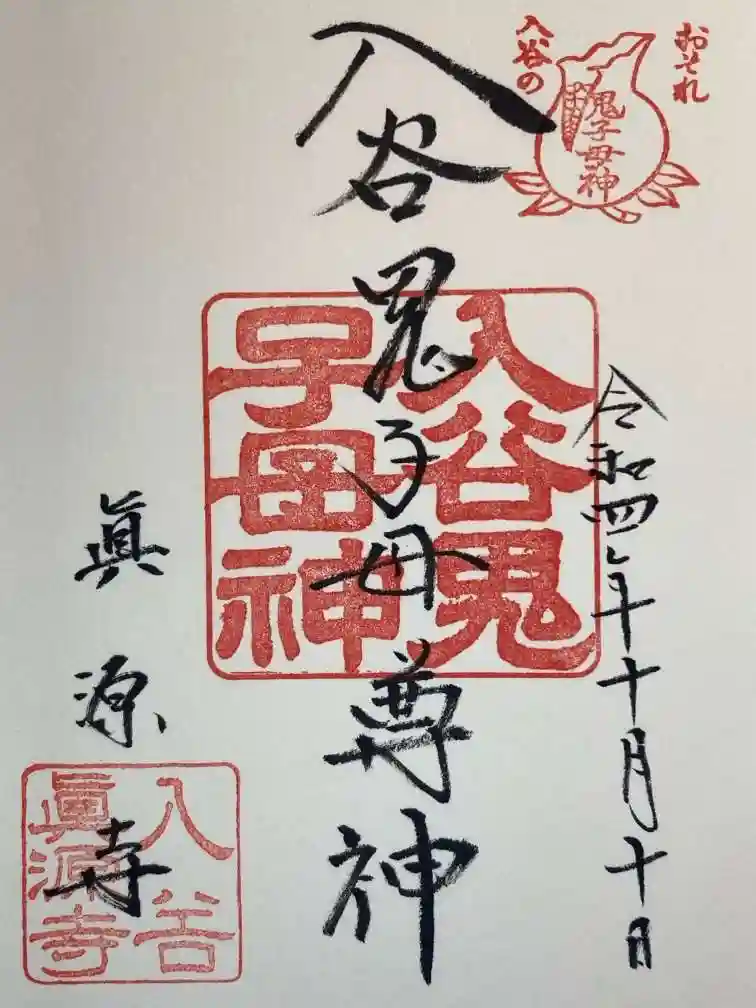 おそれ
入谷の
鬼子母神
令和四年十月十日
入谷鬼子母尊神
入谷鬼
子母神
眞源寺
入谷
眞源寺